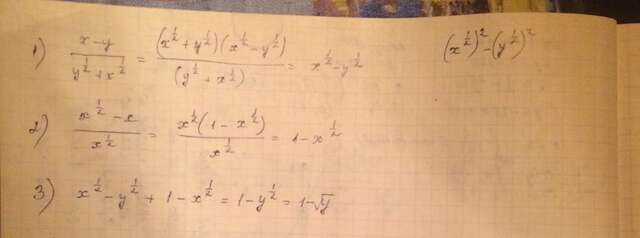 1) (x-y)/(y^(1/2)+x^(1/2)) = ((x^(1/2)+y^(1/2))(x^(1/2)-y^(1/2)))/((y^(1/2)+x^(1/2))) = x^(1/2)-y^(1/2) (x^(1/2))^2-(y^(1/2))^2
2) (x^(1/2)-x)/(x^(1/2)) = (x^(1/2)(1-x^(1/2)))/(x^(1/2)) = 1-x^(1/2)
3) x^(1/2)-y^(1/2)+1-x^(1/2)=1-y^(1/2)=1-√y